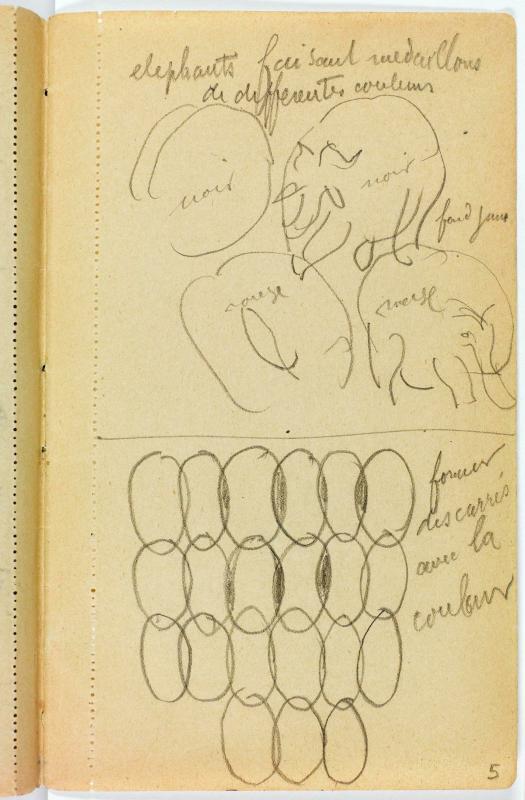 elephants faisant medaillons
de differentes couleurs
noir
noir
fond jaune
rouge
rouge
former
des carrés
avec la
couleur
5